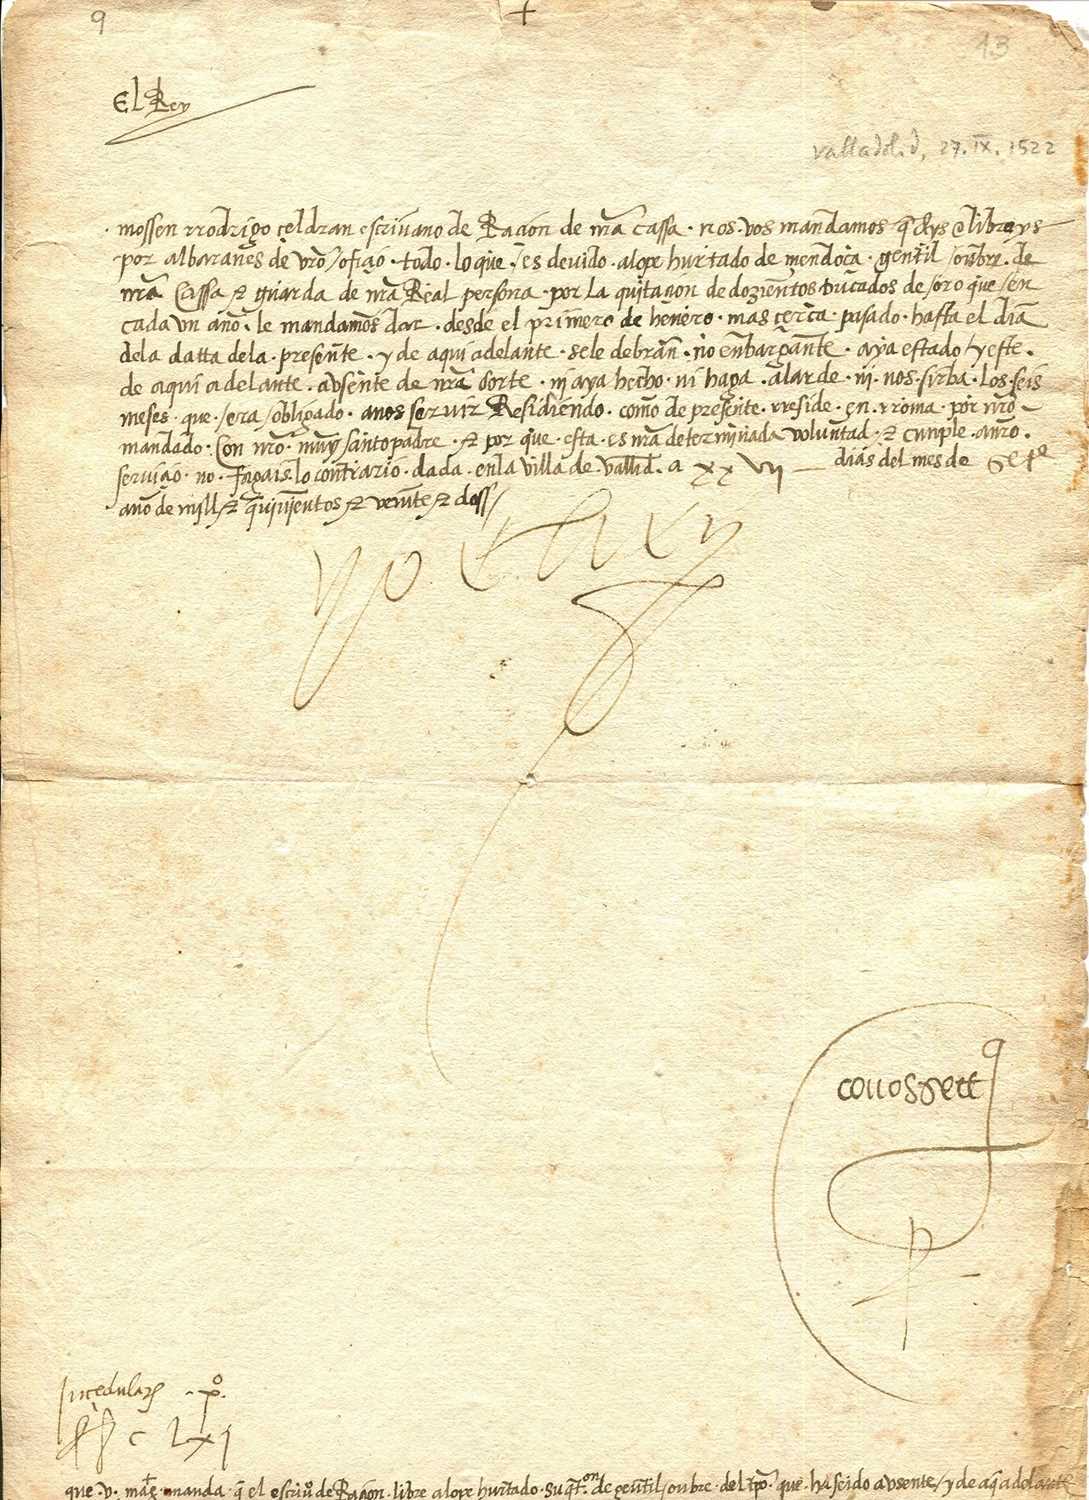 9
13
El Rey
valladolid, 27.IX.1522
mossen rrodrigo çeldran escriuano de Racion de nra cassa . nos vos mandamos q deys e libreys
por albaranes de vro /ofiçio . todo . lo que . /es deuido . a lope hurtado de mendoça . gentil /onbre . de
nra Cassa & guarda de nra Real persona . por La quitacion de dozientos ducados de /oro que /en
cada vn año . le mandamos dar . desde el primero de henero . mas çerca . pasado . hasta el dia
de la datta de la . presente . y de aqui adelante . se le debran . no enbargante . aya estado / y este .
de aqui adelante . absente de nra Corte . nj aya hecho . ni haga . alarde . nj . nos . sirba . los . seis
meses . que . /era /obligado . a nos seruir Residiendo . como de presente . rreside . en . rroma . por nro
mandado . Con nro . muy santo padre . & por que . esta . es nra determinada voluntad . & cunple . a nro .
seruiçio . no . fagais . lo contrario . dada . en la villa de . vallid . a xxvij dias del mes de sete
año de mjll & qujnjentos & veinte & doss /
yo el rey
couos secret
in çedular . pº
c lxj
que . v . mag . manda . q el escriuº de Racion . libre a lope hurtado . su qton . de gentil /onbre . del tpo . que . ha seido avsente / y de aq adelante